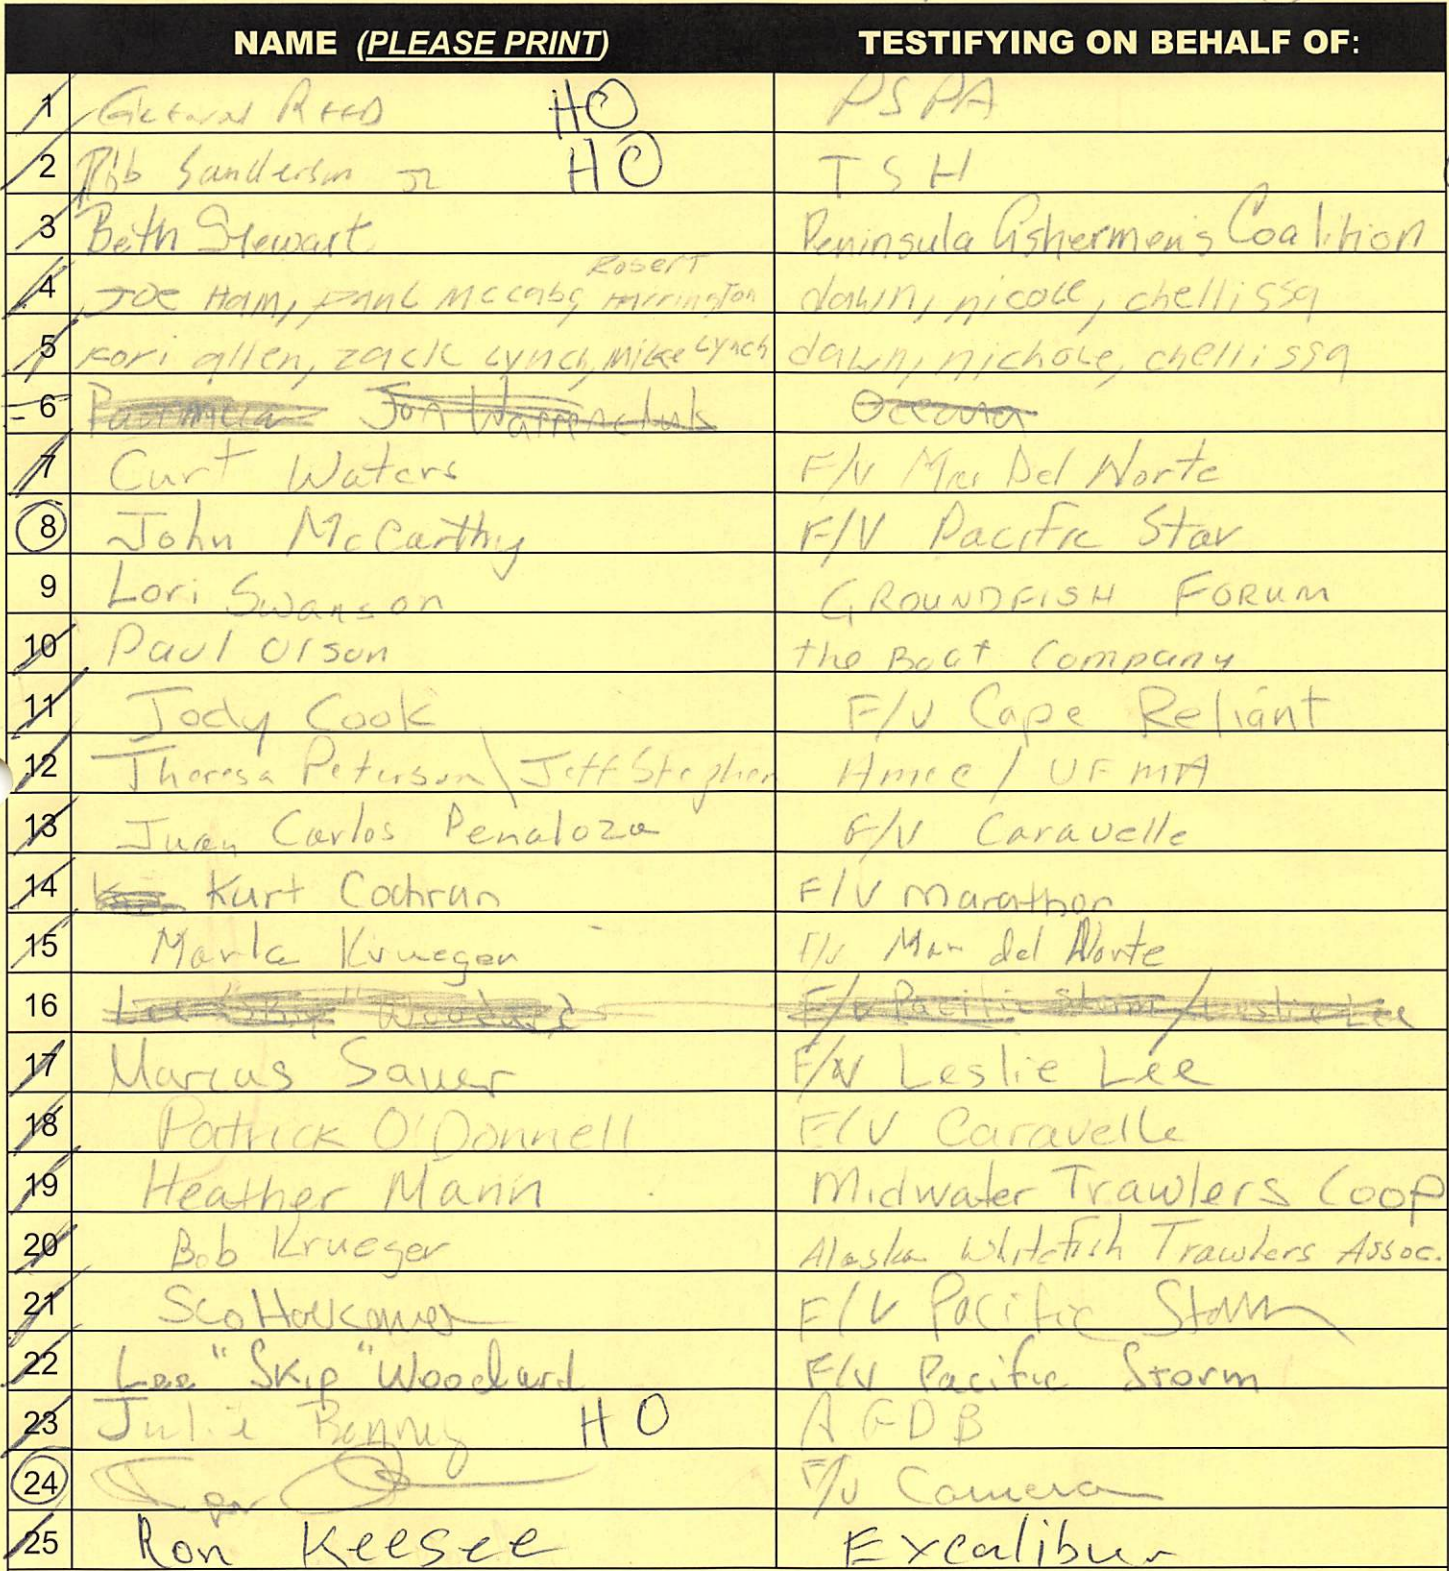 NAME (PLEASE PRINT) TESTIFYING ON BEHALF OF:
1 Glenn Reed HO PSPA
2 Rob Sanderson Jr HO TSH
3 Beth Stewart Peninsula Fishermen's Coalition
4 Joe Ham, Paul McCabe, Robert Harrington dawn, nicole, chellissa
5 Kori allen, zack Lynch, Mike Lynch dawn, nichole, chellissa
6 Jon Warrenchuk Oceana
7 Curt Waters F/V Mar Del Norte
8 John McCarthy F/V Pacific Star
9 Lori Swanson GROUNDFISH FORUM
10 Paul Olson the Boat Company
11 Jody Cook F/V Cape Reliant
12 Theresa Peterson \ Jeff Stephan AMCC / UFMA
13 Juan Carlos Penaloza F/V Caravelle
14 Kurt Cochran F/V Marathon
15 Marla Krueger F/V Mar del Norte
16 Lee "Skip" Woodard F/V Pacific Storm / Leslie Lee
17 Marcus Sauer F/V Leslie Lee
18 Patrick O'Donnell F/V Caravelle
19 Heather Mann Midwater Trawlers Coop
20 Bob Krueger Alaska Whitefish Trawlers Assoc.
21 F/V Pacific Storm
22 Lee "Skip" Woodard F/V Pacific Storm
23 Julie Bonney HO AGDB
24 F/V
25 Ron Keesee Excalibur